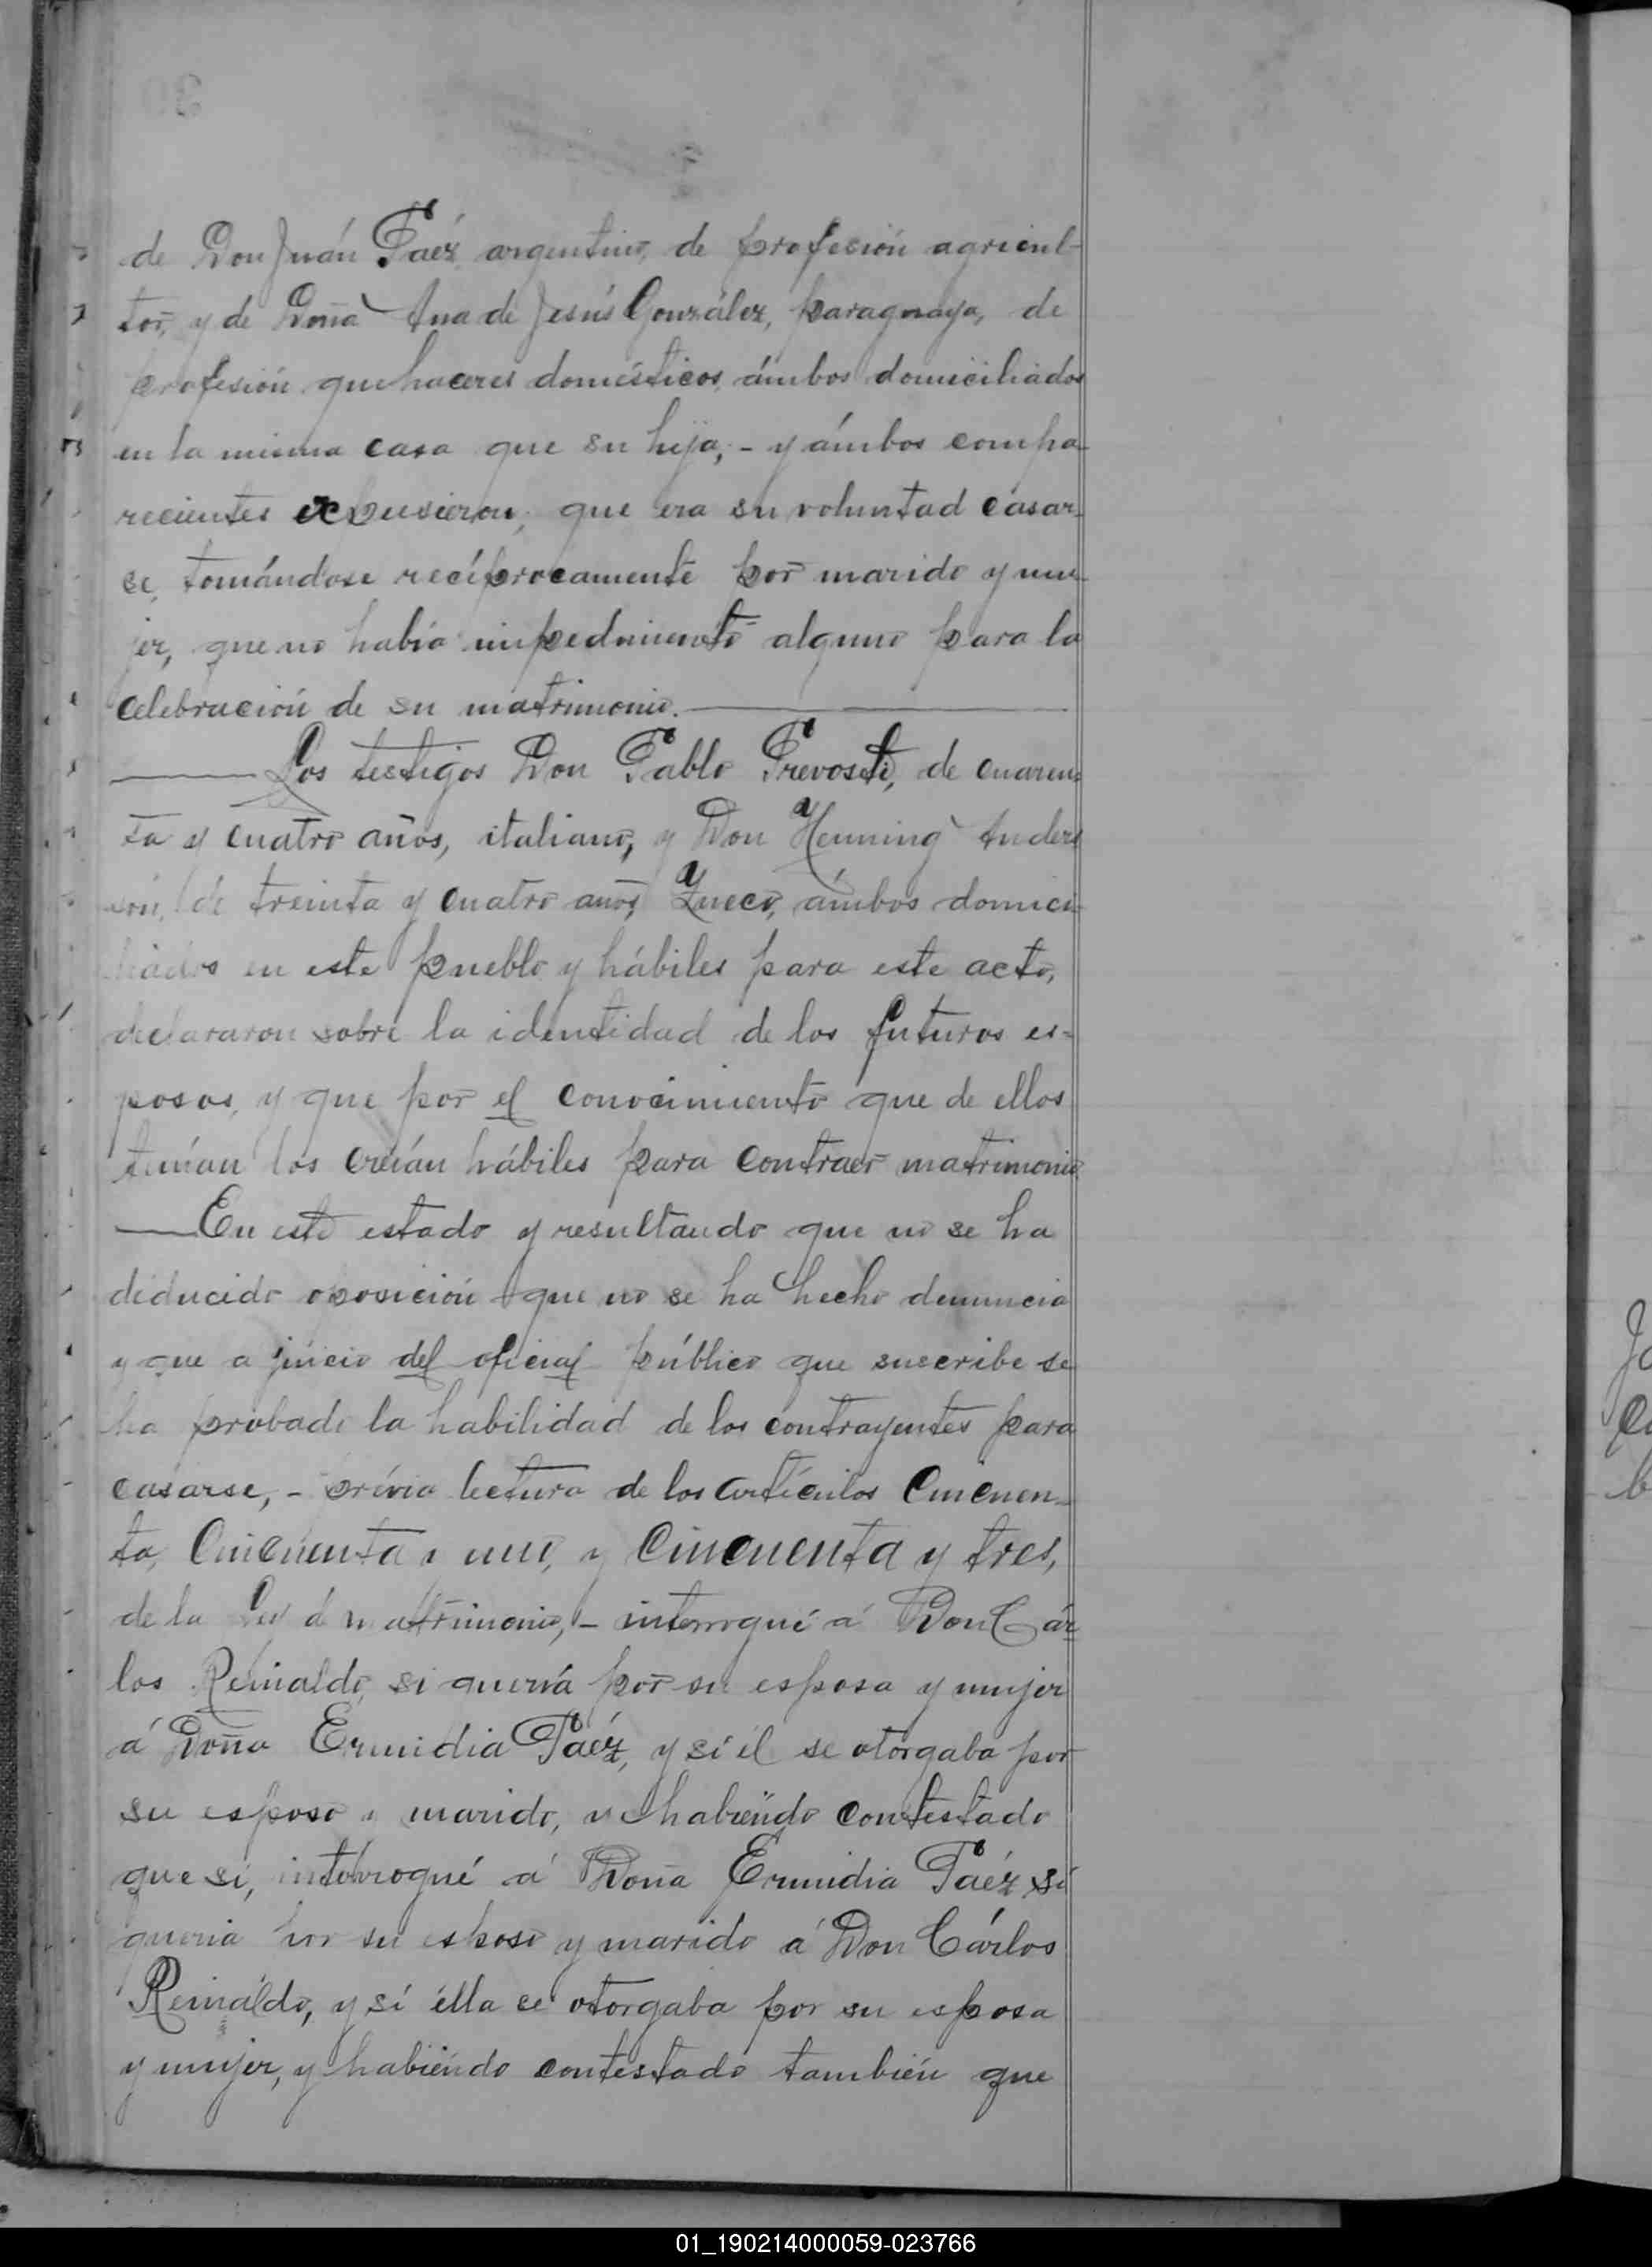 de Don Juán Páez argentino, de profesión agricul-
tor, y de Doña Ana de Jesús González, paraguaya, de
profesión quehaceres domésticos, ámbos domiciliados
en la misma casa que su hija; - y ámbos compa-
recientes expusieron; que era su voluntad casar-
se, tomándose recíprocamente por marido y mu-
jer, que no había impedmiento alguno para la
celebración de su matrimonio.
Los testigos Don Pablo Prevosti, de cuaren-
ta y cuatro años, italiano, y Don Henning Anders
són, de treinta y cuatro años, Zueco, ámbos domici-
liados en este pueblo y hábiles para este acto,
declararon sobre la identidad de los futuros es-
posos, y que por el conocimiento que de ellos
tenían los creían hábiles para contraer matrimonio.
En este estado y resultando que no se ha
deducido oposición que no se ha hecho denuncia
y que a juicio del oficial público que suscribe se
ha probado la habilidad de los contrayentes para
casarse, - prévia lectura de los artículos Cincuen-
ta, Cincuenta y uno, y Cincuenta y tres,
de la Ley de matrimonio, - interrogué á Don Cár
los Reinaldo, si quería por su esposa y mujer
á Doña Ermidia Paéz, y sí él se otorgaba por
su esposo y marido, y habiéndo contestado
que sí, interrogué á Doña Ermidia Paéz sí
queria por su esposo y marido á Don Cárlos
Reináldo, y sí élla se otorgaba por su esposa
y mujer, y habiéndo contestado también que
01_190214000059-023766